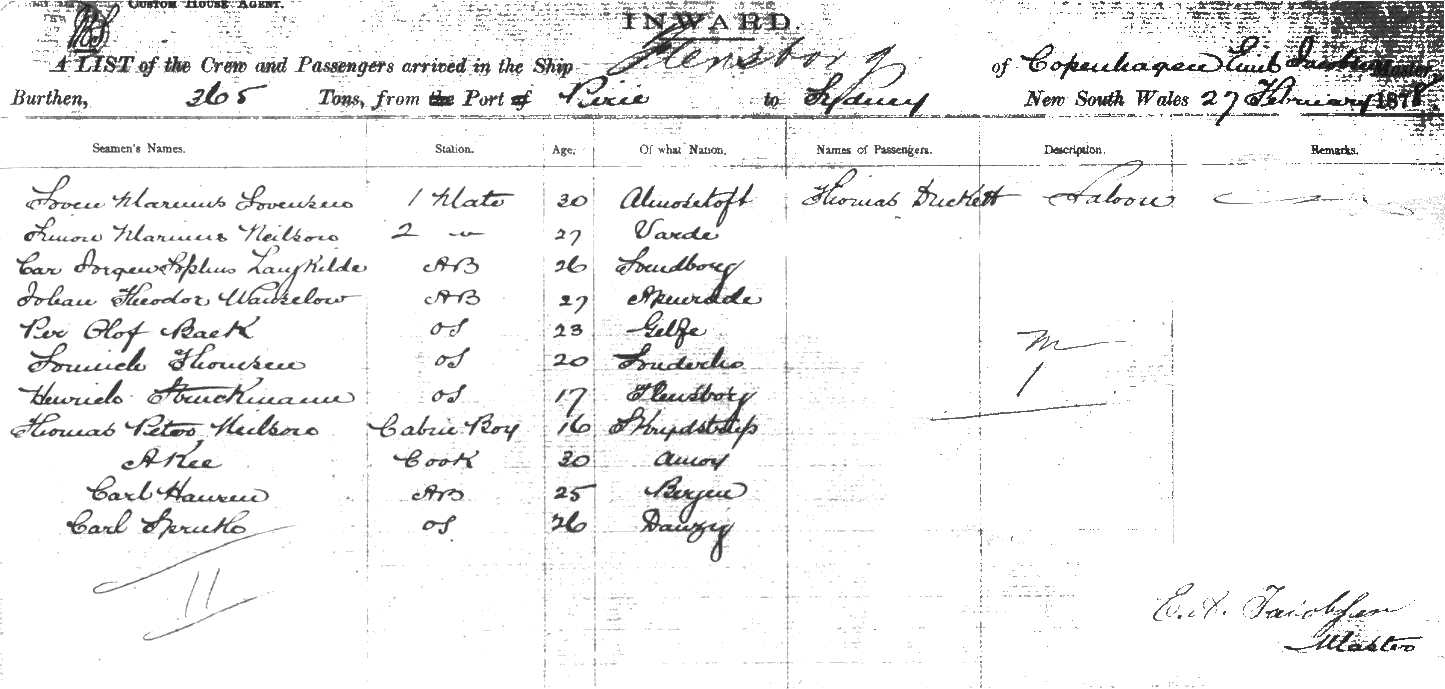 CUSTOM HOUSE AGENT.
INWARD.
A LIST of the Crew and Passengers arrived in the Ship Flensborg of Copenhagen Emil Jacobsen Master,
Burthen, 365 Tons, from the Port of Pirie to Sydney New South Wales 27 February 1878
Seamen's Names. Station. Age. Of what Nation. Names of Passengers. Description. Remarks.
Soven Marinus Sovensen 1 Mate 30 Thomas Duckett Saloon
Simon Marinus Neilson 2 " 27 Varde
Car Jorgen Sophus Langkilde AB 26 Svendborg
Johan Theodor Wanselow AB 27 Apenrade
Per Olof Baek OS 23 Gelfe
Thomsen OS 20 Sonderho
Henrich Struckmann OS 17 Flensborg
Thomas Peter Neilson Cabin Boy 16 Skrydstrup
A Kee Cook 30 Amoy
Carl Hansen AB 25 Bergen
Carl OS 26 Danzig
M
1
11
E. A. Jacobsen
Master